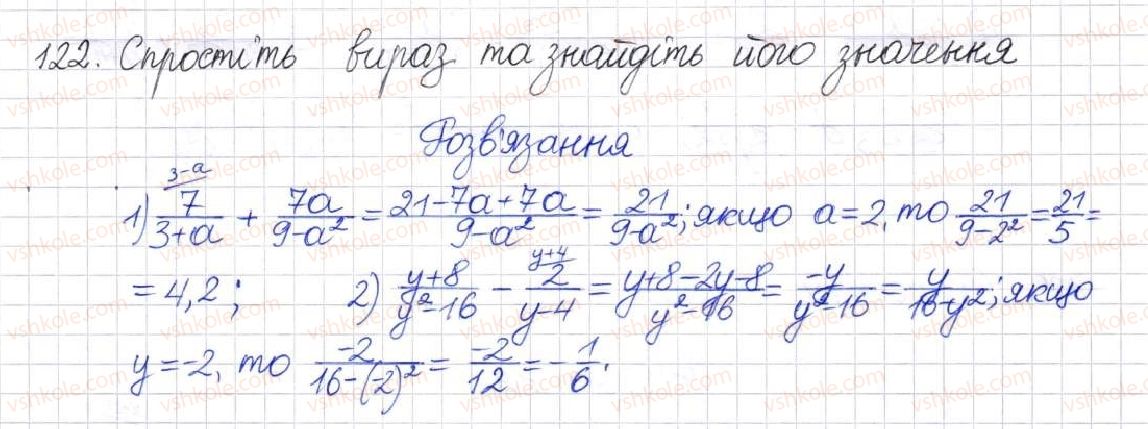 122. Спростіть вираз та знайдіть його значення
Розв'язання
1) 7/(3+a) (3-a) + 7a/(9-a²) = (21-7a+7a)/(9-a²) = 21/(9-a²); якщо a=2, то 21/(9-2²) = 21/5 =
= 4,2; 2) (y+8)/(y²-16) - 2/(y-4) (y+4) = (y+8-2y-8)/(y²-16) = -y/(y²-16) = y/(16-y²); якщо
y=-2, то -2/(16-(-2)²) = -2/12 = -1/6.